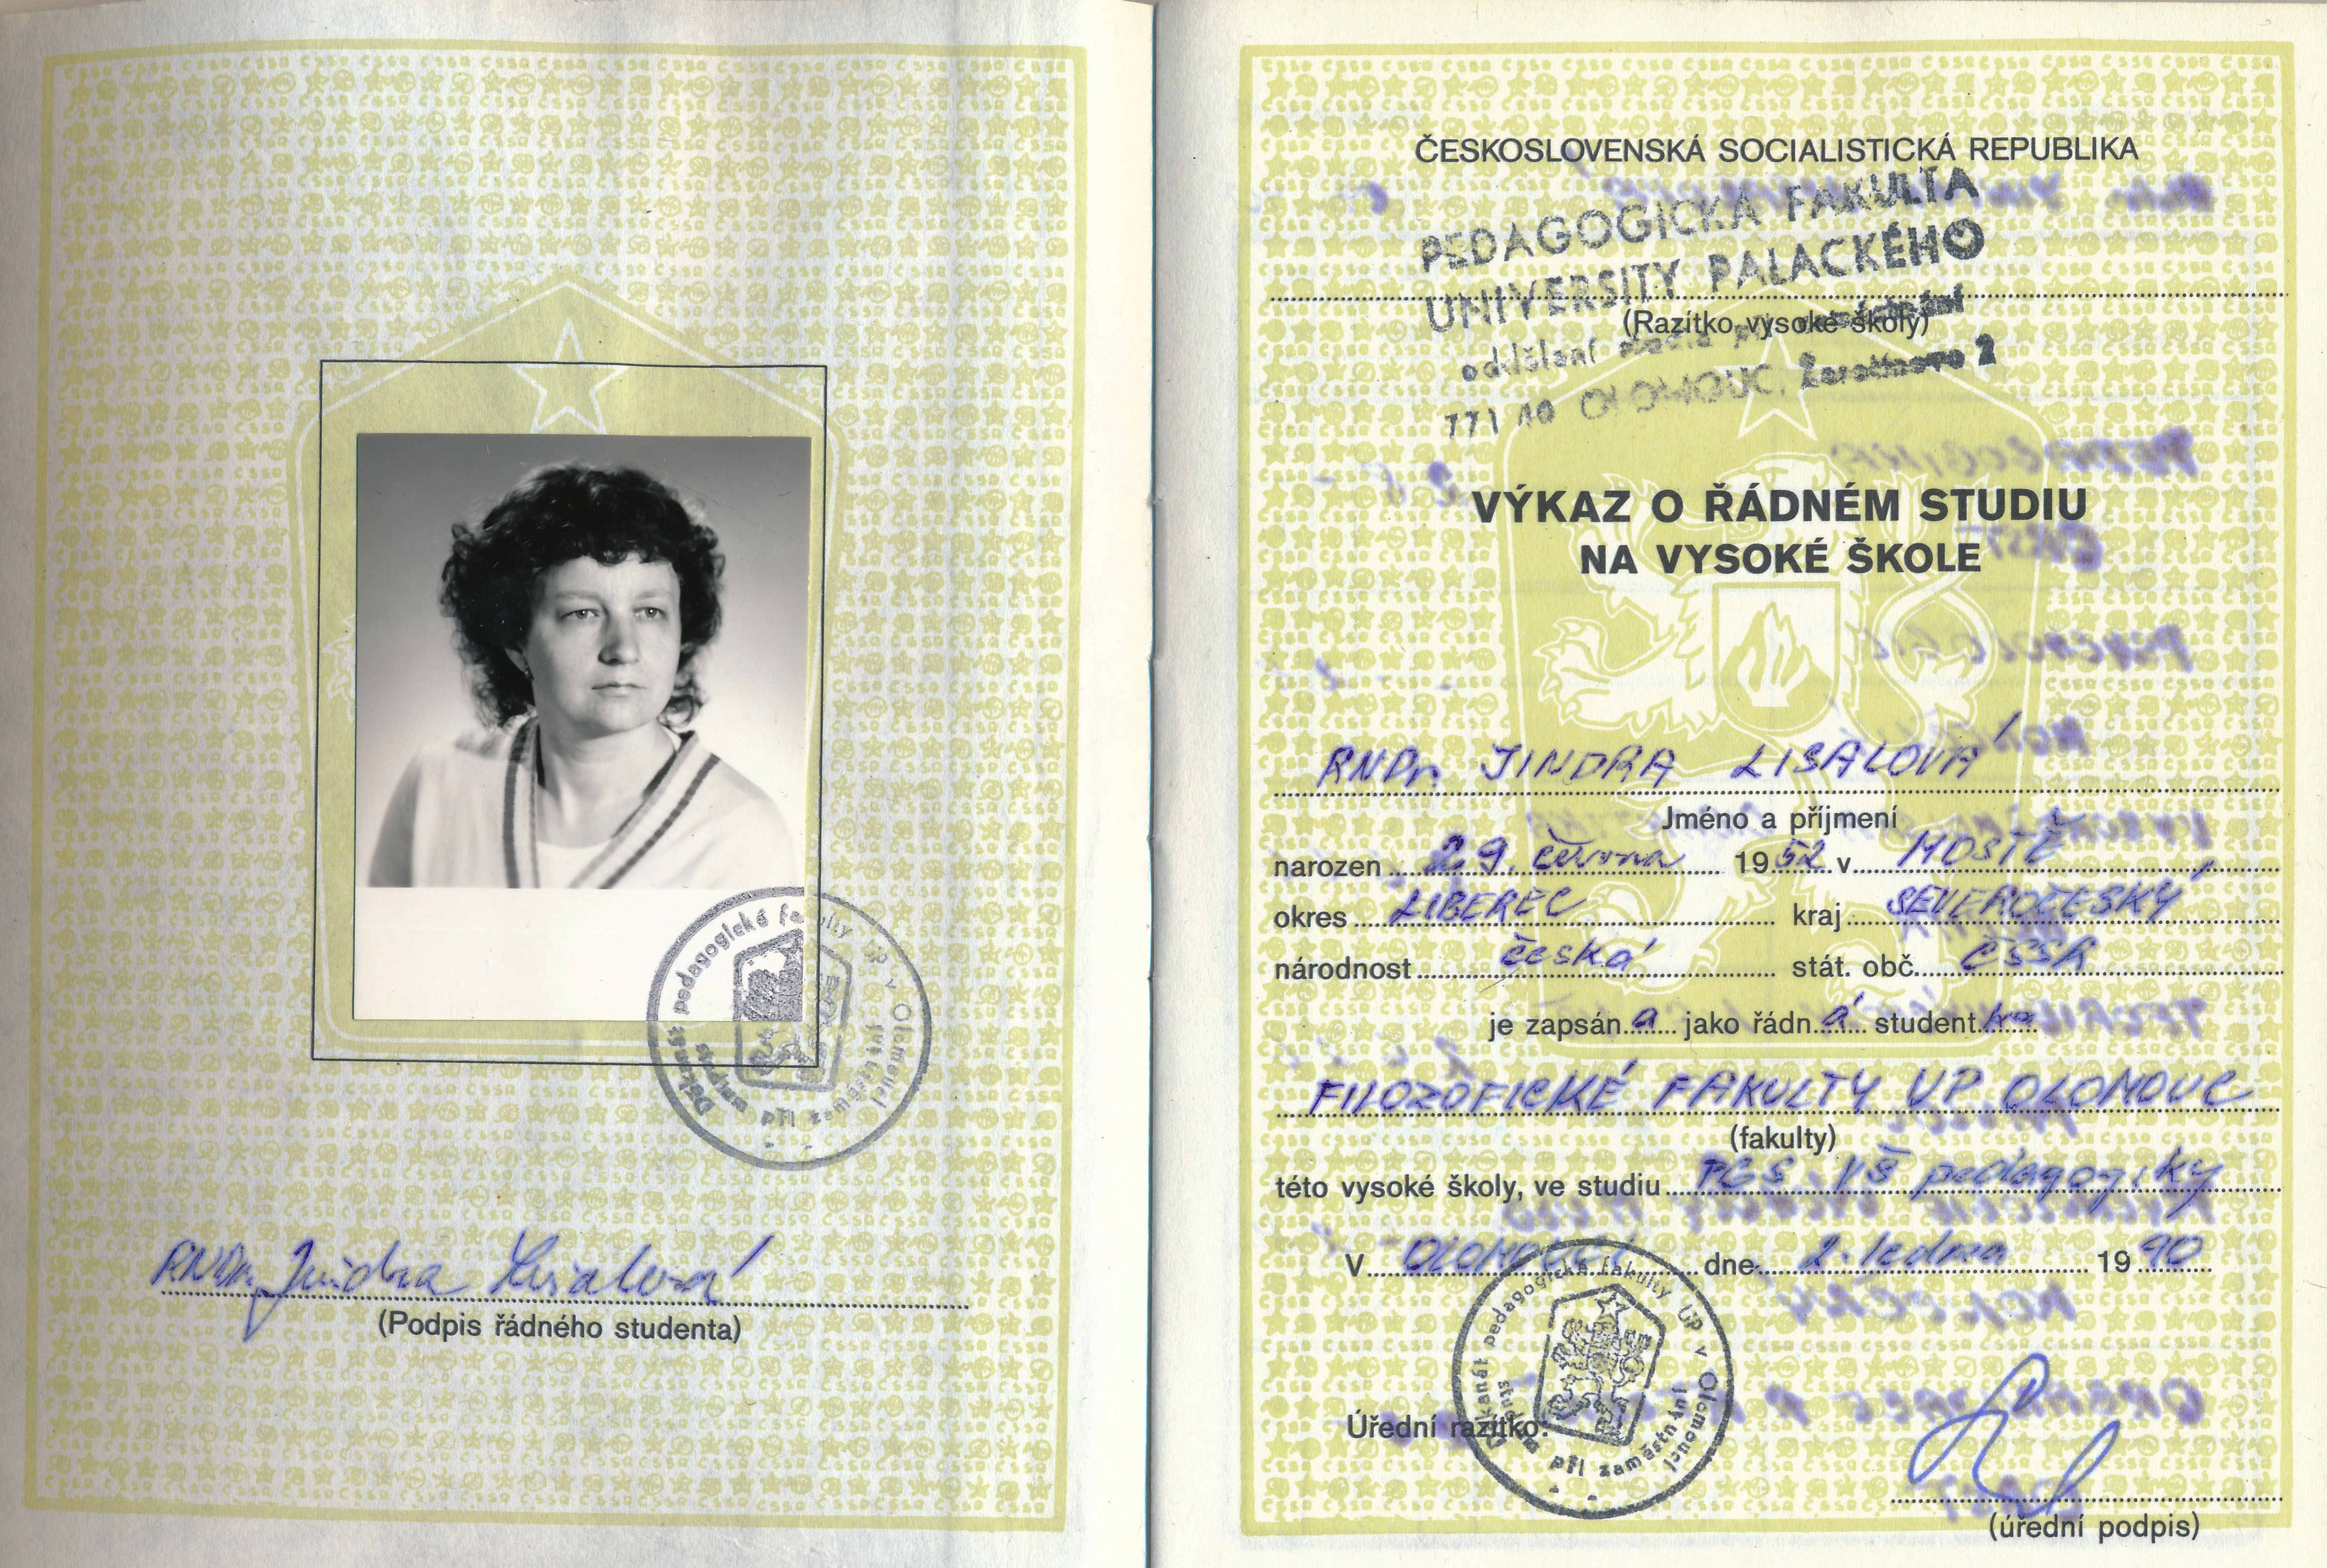 RNDr. Jindra Lisalová
(Podpis řádného studenta)
Děkanát pedagogické fakulty UP v Olomouci
studium při zaměstnání
ČESKOSLOVENSKÁ SOCIALISTICKÁ REPUBLIKA
PEDAGOGICKÁ FAKULTA
UNIVERSITY PALACKÉHO
(Razítko vysoké školy)
oddělení studia při zaměstnání
771 40 OLOMOUC, Žerotínovo 2
VÝKAZ O ŘÁDNÉM STUDIU
NA VYSOKÉ ŠKOLE
RNDr. JINDRA LISALOVÁ
Jméno a příjmení
narozen 29. června 1952 v MOSTĚ
okres LIBEREC kraj SEVEROČESKÝ
národnost česká stát. obč. ČSSR
je zapsán a jako řádn á student ka
FILOZOFICKÉ FAKULTY UP OLOMOUC
(fakulty)
této vysoké školy, ve studiu PGS VŠ pedagogiky
V OLOMOUCI dne 2. ledna 1990
Děkanát pedagogické fakulty UP v Olomouci
studium při zaměstnání
Úřední razítko:
(úřední podpis)